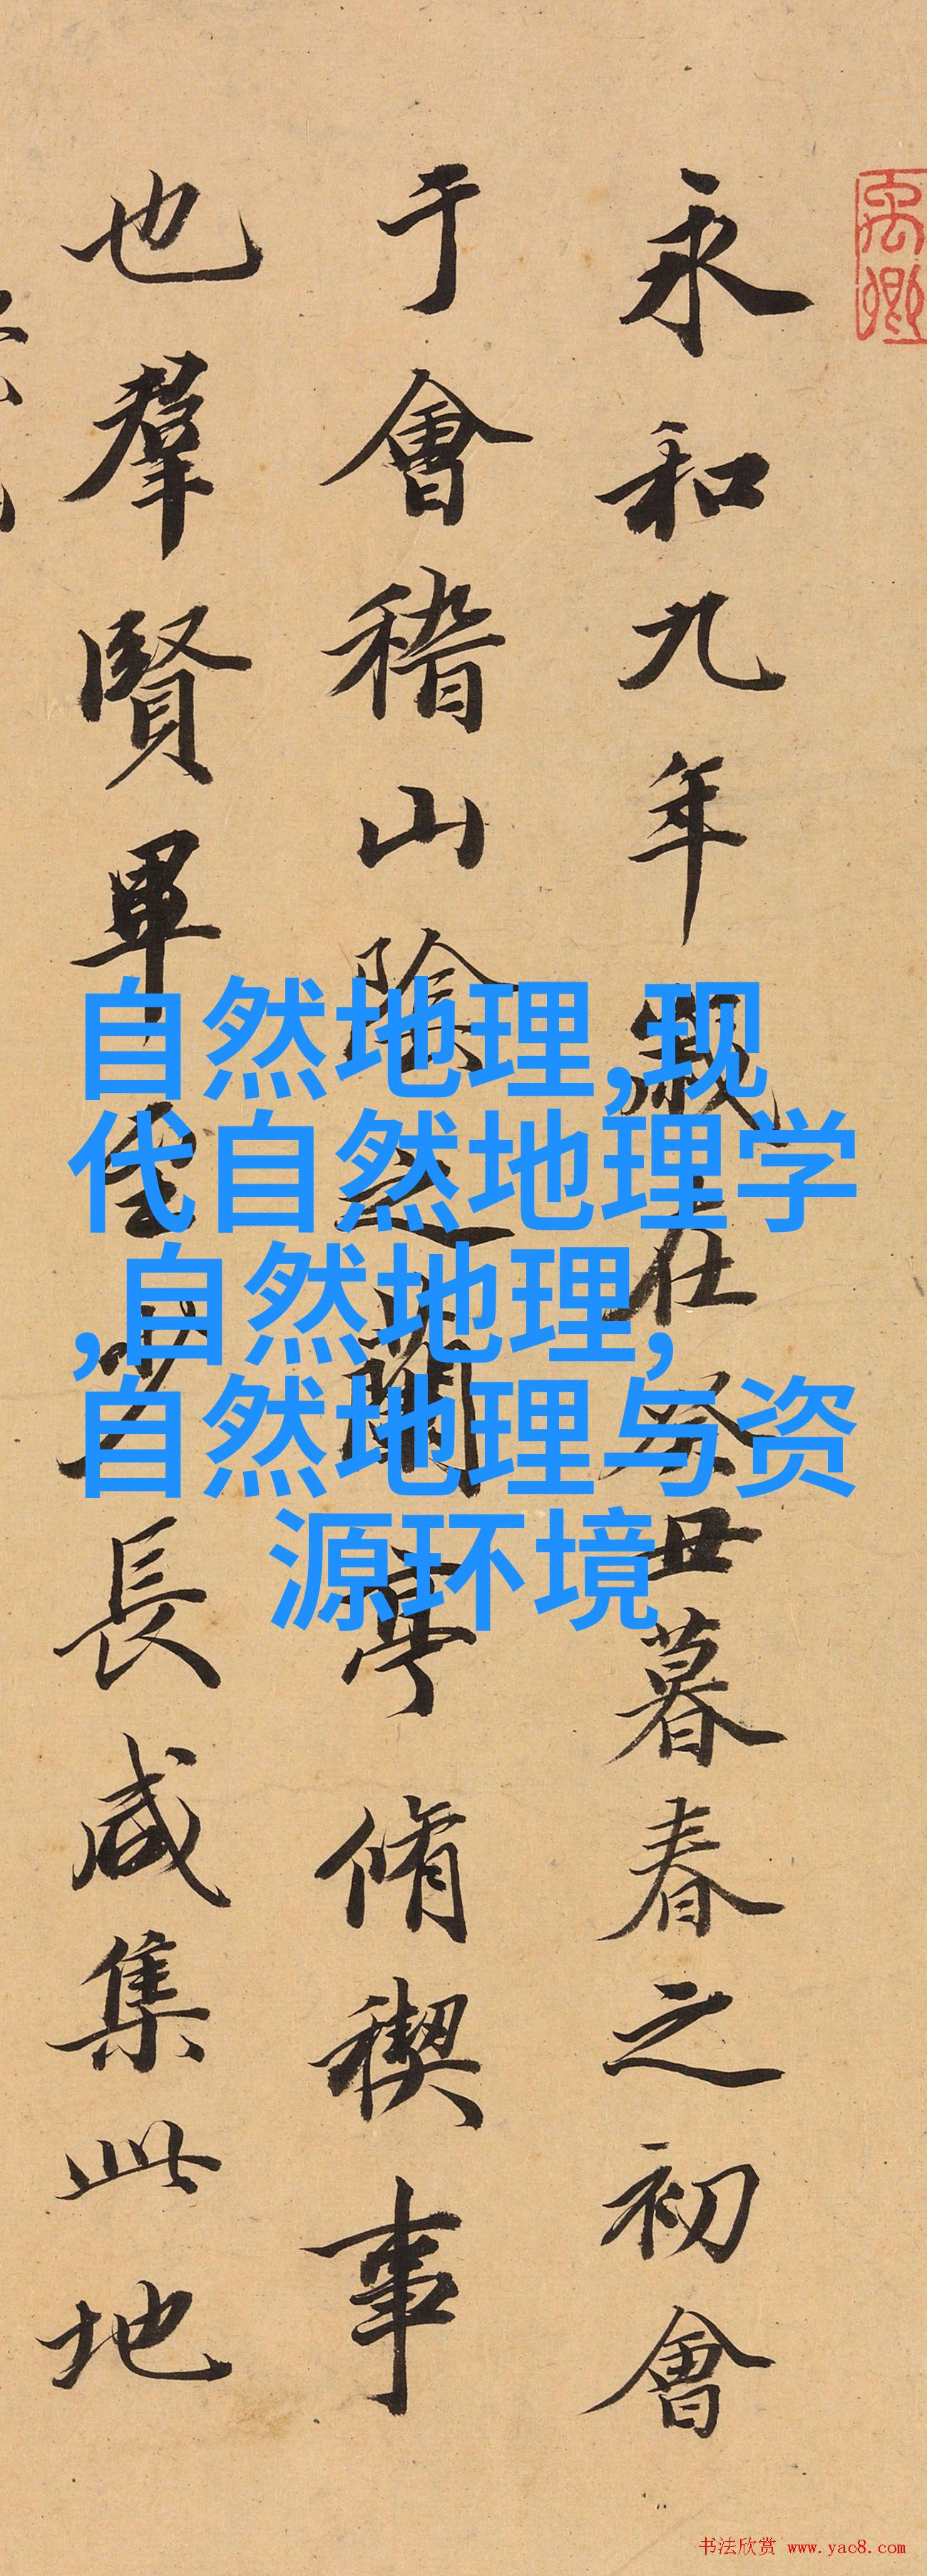 永和九年歲在癸丑暮春之初會
于會稽山陰之蘭亭脩稧事
也羣賢畢至少長咸集此地
自然地理,现
代自然地理学
,自然地理,
自然地理与资
源环境
书法欣赏 www.yac8.com